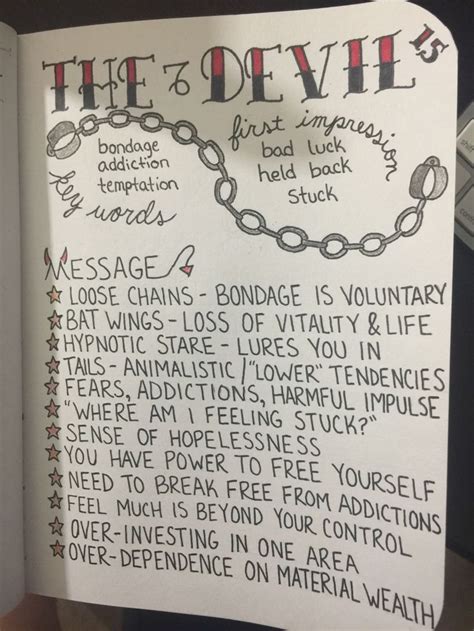 THE DEVIL 15
♑
bondage
addiction
temptation
key words
first impression
bad luck
held back
stuck
MESSAGE
LOOSE CHAINS - BONDAGE IS VOLUNTARY
BAT WINGS - LOSS OF VITALITY & LIFE
HYPNOTIC STARE - LURES YOU IN
TAILS - ANIMALISTIC / "LOWER" TENDENCIES
FEARS, ADDICTIONS, HARMFUL IMPULSE
"WHERE AM I FEELING STUCK?"
SENSE OF HOPELESSNESS
YOU HAVE POWER TO FREE YOURSELF
NEED TO BREAK FREE FROM ADDICTIONS
FEEL MUCH IS BEYOND YOUR CONTROL
OVER-INVESTING IN ONE AREA
OVER-DEPENDENCE ON MATERIAL WEALTH